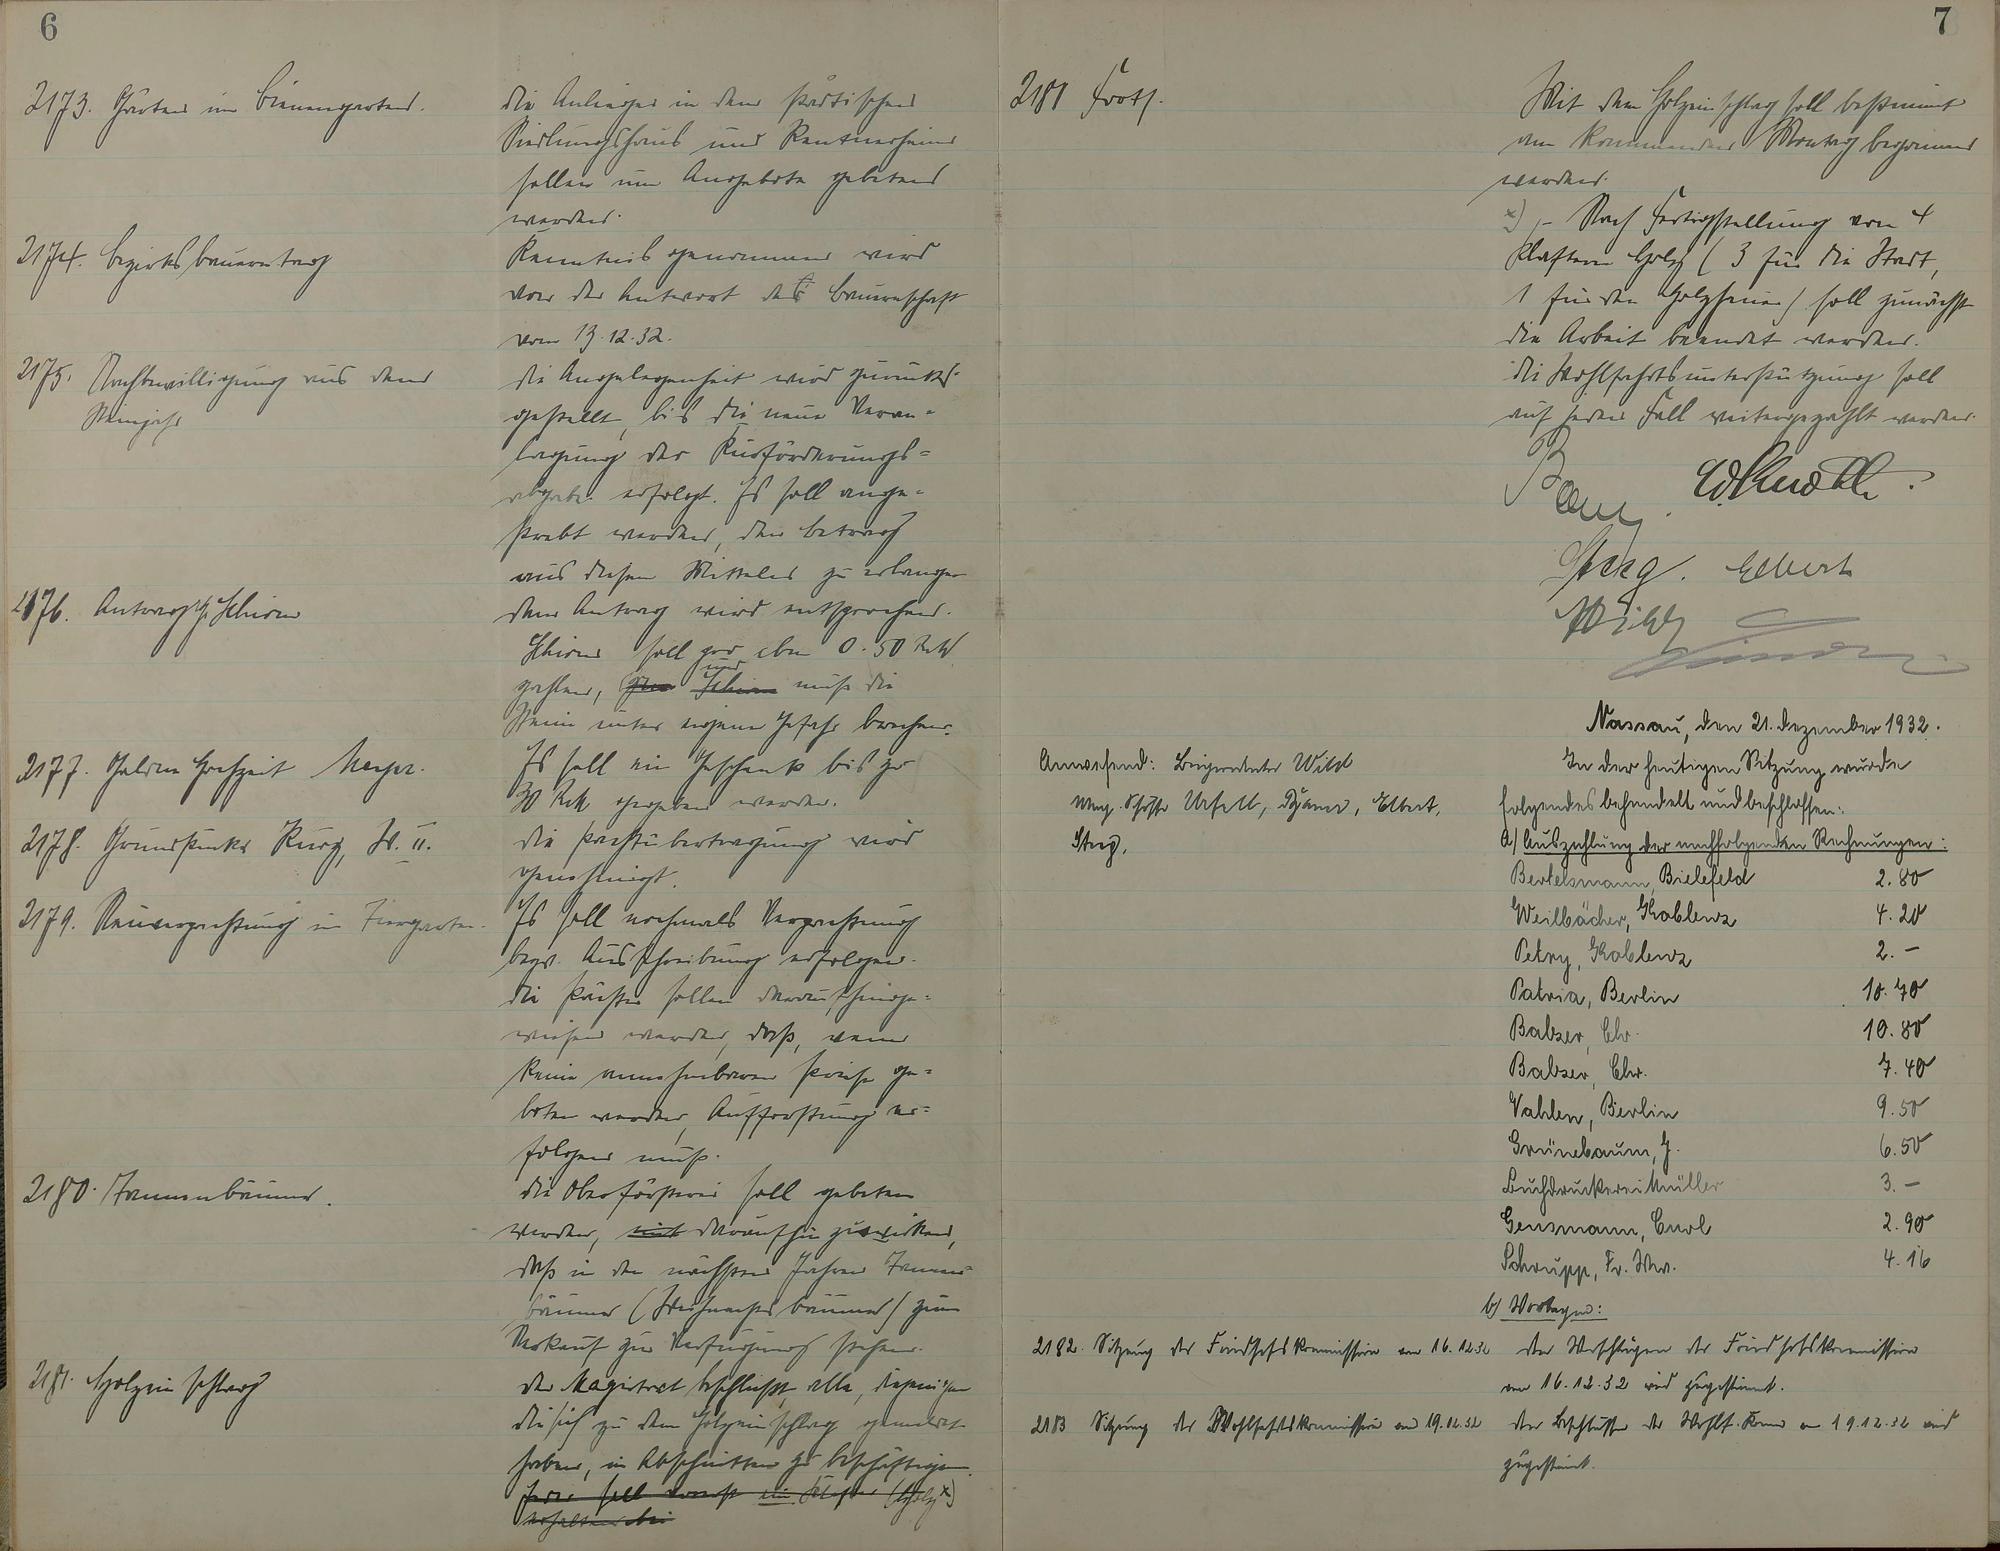 6
2173. Garten im Bienengarten.
Die Anlieger in dem städtischen
Siedlungshaus und Rentnerheim
sollen um Angebote gebeten
werden.
2174. Bezirksbauerntag
Kenntnis genommen wird
von der Antwort der Bauernschaft
vom 13.12.32.
2175. Nachbewilligung aus dem
Die Angelegenheit wird zurück-
gestellt, bis die neue Veran-
lagung der Kurförderungs-
abgabe erfolgt. Es soll ange-
strebt werden, den Betrag
aus diesen Mitteln zu erlangen
2176. Antrag Schirm
Dem Antrag wird entsprochen.
Schirm soll pro cbm 0.50 RM
zahlen, und muß die
Steine unter eigener Gefahr brechen.
2177. Goldene Hochzeit Meyer.
Es soll ein Geschenk bis zu
30 RM gegeben werden.
2178. Grundstücke Kurz, W. II.
Die Pachtübertragung wird
genehmigt.
2179. Neuverpachtung im Tiergarten.
Es soll nochmals Verpachtung
bezw. Ausschreibung erfolgen.
Die Pächter sollen darauf hinge-
wiesen werden, daß, wenn
keine annehmbaren Preise ge-
boten werden, Aufforstung er-
folgen muß.
2180. Tannenbäume.
Die Oberförsterei soll gebeten
werden, mit daraufhin zuwirken,
daß in den nächsten Jahren Tannen-
bäume (Weihnachtsbäume) zum
Verkauf zur Verfügung stehen.
2181. Holzeinschlag
Der Magistrat beschließt, alle, diejenigen
die sich zu dem Holzeinschlag gemeldet
haben, in Abschnitten zu beschäftigen.
Jeder soll ein Klafter Holz x)
erhalten
7
2181 Forts.
Mit dem Holzeinschlag soll bestimmt
am kommenden Montag begonnen
werden.
x) Nach Fertigstellung von 4
Klaftern Holz (3 für die Stadt,
1 für den Holzhauer) soll zunächst
die Arbeit beendet werden.
Die Wohlfahrtsunterstützung soll
auf jeden Fall weitergezahlt werden.
Sterg. Elbert
Wild
Nassau, den 21. Dezember 1932.
Anwesend: Bürgermeister Wild
Mag. Schöffe Unfelt, Elbert,
Sterg.
In der heutigen Sitzung wurde
folgendes behandelt und beschlossen:
a) Auszahlung der nachfolgenden Rechnungen:
Bertelsmann, Bielefeld 2.80
Weilbächer, Koblenz 4.20
Petry, Koblenz 2.-
Patria, Berlin 10.70
Balzer, Chr. 10.80
Balzer, Chr. 7.40
Vahlen, Berlin 9.50
Grünebaum, J. 6.50
Buchdruckerei Müller 3.-
Gensmann, Carl 2.90
Schrupp, Fr. Ww. 4.16
b) Vorlagen:
2182. Sitzung der Friedhofskommission am 16.12.32
Den Vorschlägen der Friedhofskommission
vom 16.12.32 wird zugestimmt.
2183 Sitzung der Wohlfahrtskommission am 19.12.32
Den Beschlüssen der Wohlf. Komm. vom 19.12.32 wird
zugestimmt.